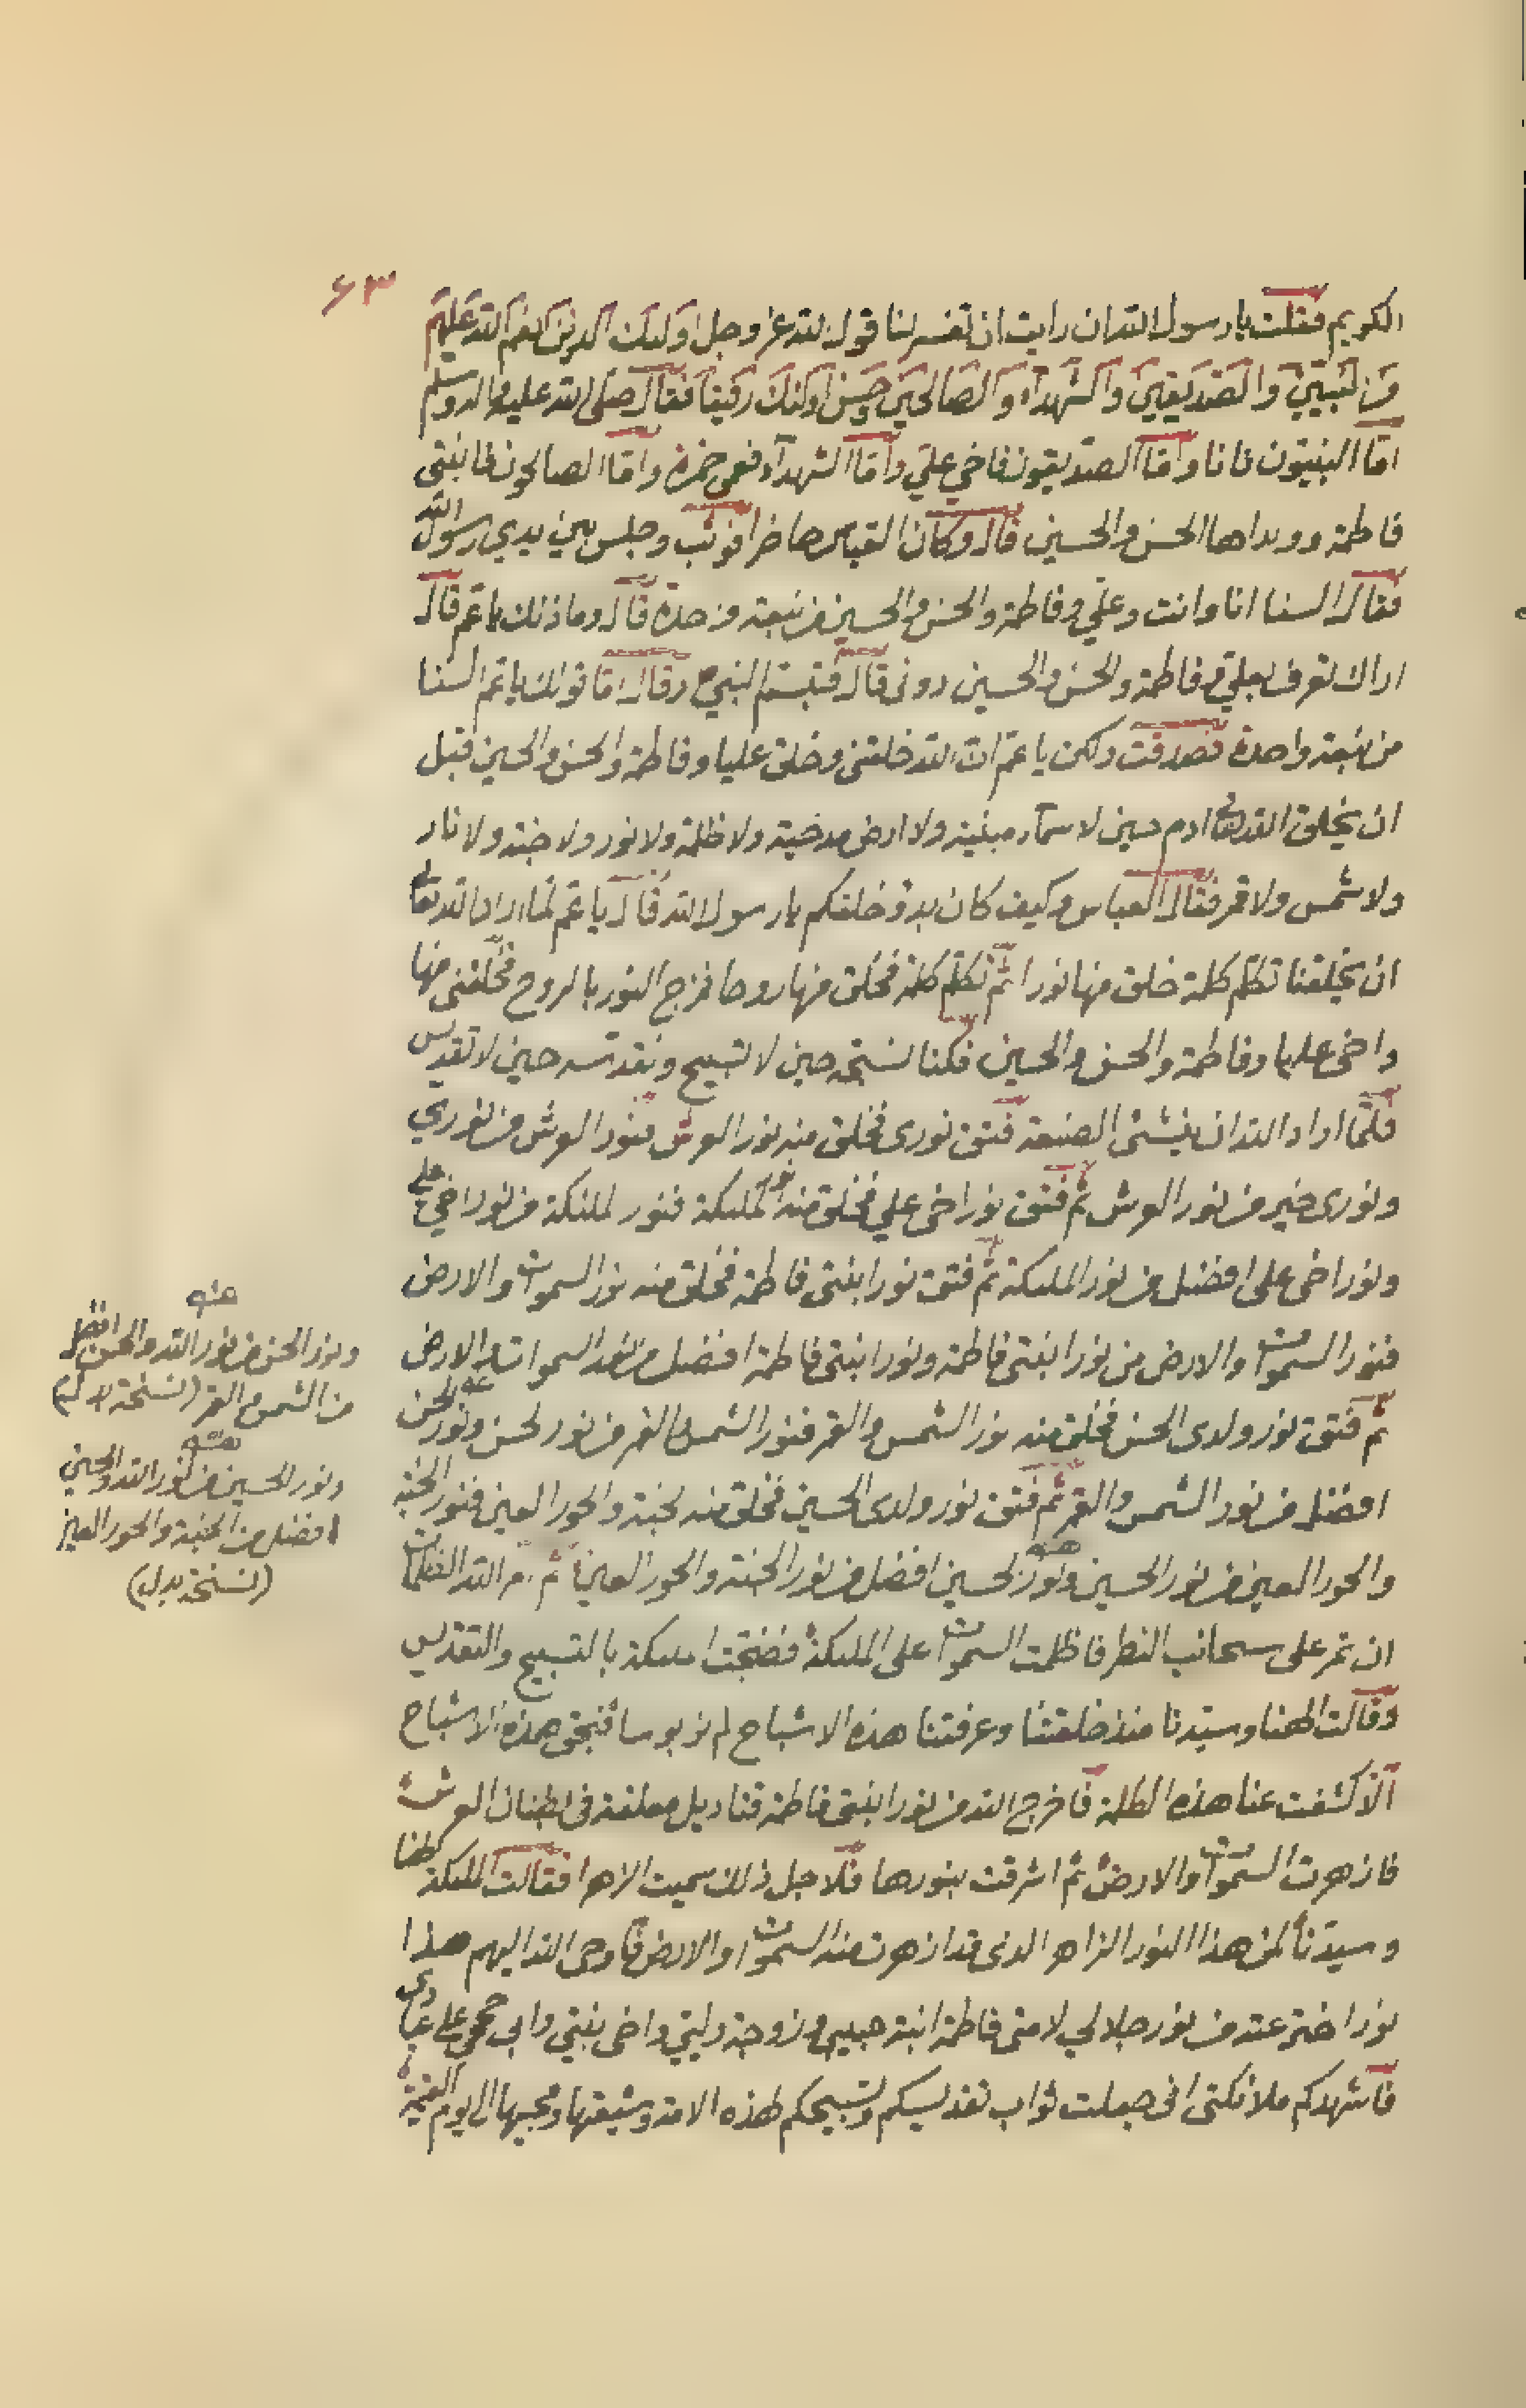 ۶۳
الكريم فقلت يا رسول الله ان رايت ان تفسر لنا قول الله عز وجل اولئك الذين انعم الله عليهم
من النبيين والصديقين والشهدآء والصالحين وحسن اولئك رفيقا فقال صلى الله عليه واله وسلم
امّا النبيّون فانا وامّا الصدّيقون فاخي علي وامّا الشهدآء فعمى حمزة وامّا الصالحون فابنتى
فاطمة وولداها الحسن والحسين قال وكان العباس حاضرا فوثب وجلس بين يدي رسول الله
فقال السنا انا وانت وعلي وفاطمة والحسن والحسين من نبعة وحدة قال وما ذلك يا عم قال
اراك تعرف بعلي وفاطمة والحسن والحسين دونى قال فتبسّم النبي وقال امّا قولك يا عم السنا
من نبعة واحدة فصدقت ولكن يا عمّ انّ الله خلقنى وخلق عليا وفاطمة والحسن والحسين قبل
ان يخلق الله تعالى ادم حين لا سمآء مبنية ولا ارض مدحية ولا ظلمة ولا نور ولا جنة ولا نار
ولا شمس ولا قمر فقال العباس وكيف كان بدؤ خلقكم يا رسول الله فقال يا عم لمّا اراد الله تعالى
ان يخلقنا تكلّم كلمة خلق منها نورا ثم تكلّم كلمة فخلق منها روحا فمزج النور بالروح فخلقنى منها
واخى عليا وفاطمة والحسن والحسين فكنا نسبّحه حين لا تسبيح ونقدّسه حين لا تقديس
فلمّا اراد الله ان ينشئ الصنعة فتق نورى فخلق منه نور العرش فنور العرش من نوري
ونورى خير من نور العرش ثم فتق نور اخى علي فخلق منه نور الملئكة فنور لملئكة من نور اخي علي
ونور اخى على افضل من نور الملئكة ثم فتق نور ابنتى فاطمة فخلق منه نور السموات والارض
فنور السموات والارض من نور ابنتى فاطمة ونور ابنتى فاطمة افضل من نور السموات والارض
ثم فتق نور ولدى الحسن فخلق منه نور الشمس والقمر فنور الشمس والقمر من نور لحسن ونور الحسن
افضل من نور الشمس والقمر ثم فتق نور ولدى الحسين فخلق منه لجنة والحور العين فنور الجنة
والحور العين من نور الحسين ونور لحسين افضل من نور الجنة والحور العين ثم امر الله الظلمات
ان تمر على سحائب النظر فاظلمت السموات على الملئكة فضجّت الملئكة بالتسبيح والتقديس
وقالت الهنا وسيّدنا منذ خلقتنا وعرفتنا هذه الاشباح لم نر بوسا فبحق هذه الاشباح
الّا كشفت عنا هذه الظلمة فاخرج الله من نور ابنتى فاطمة قناديل معلقة فى بطنان العرش
فازهرت السموات والارض ثم اشرقت بنورها فلاجل ذلك سميت الزهرا فقالت الملئكة الهنا
وسيّدنا لمن هذا النور الزاهر الذى قد ازهرت منه السموات والارض فاوحى الله اليهم هذا
نور اخترعته من نور جلالي لامتى فاطمة ابنة حبيبى وزوجة وليّي واخى نبيّي وابى حججي على عبادى
فاشهدكم ملائكتى انى جعلت ثواب تقديسكم وتسبيحكم لهذه الامة وشيعتها ومحبيها الى يوم القيمة
ونور الحسن من نور الله والحسن افضل
من الشمس والقمر (نسخة بدل)
ونور الحسين من نور الله والحسين
افضل من الجنة والحور العين
(نسخة بدل)